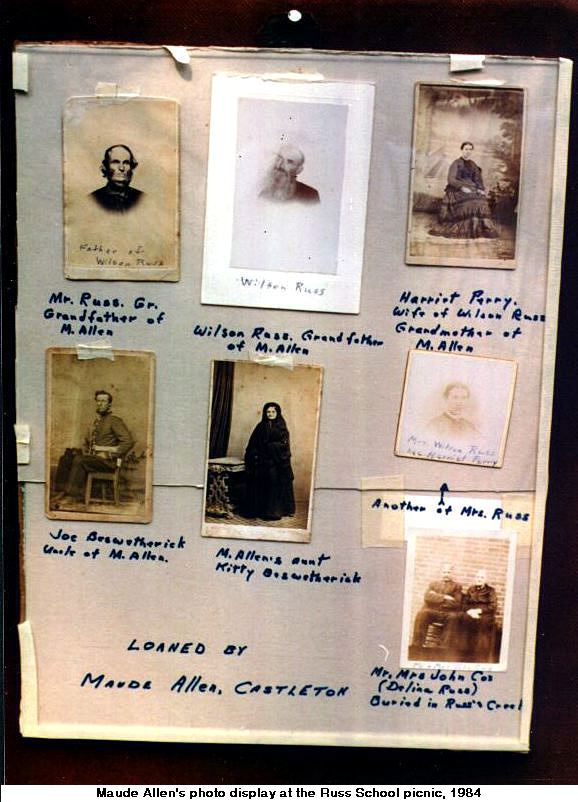 Father of
Wilson Russ
Mr. Russ. Gr.
Grandfather of
M. Allen
Wilson Russ
Wilson Russ. Grandfather
of M. Allen
Harriet Perry.
Wife of Wilson Russ
Grandmother of
M. Allen
Joe Beswetherick
Uncle of M. Allen.
M. Allen's aunt
Kitty Beswetherick
Mrs. Wilson Russ
nee Harriet Perry
Another of Mrs. Russ
Mr. Mrs John Cox
(Delina Russ)
Buried in Russ's Creek
LOANED BY
MAUDE Allen, CASTLETON
Maude Allen's photo display at the Russ School picnic, 1984